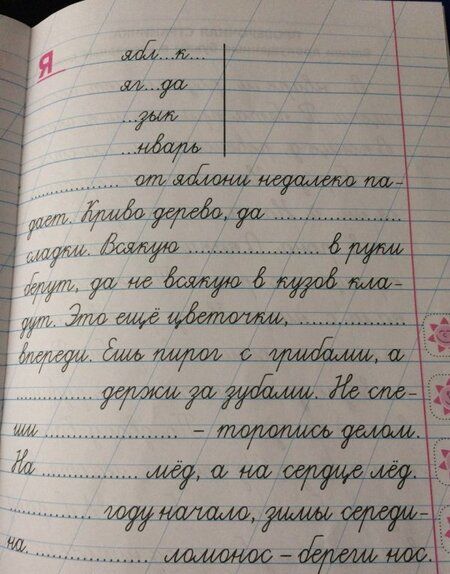 Я
ябл...к...
яг...да
...зык
...нварь
............... от яблони недалеко па-
дает. Криво дерево, да ......................
сладки. Всякую ...................... в руки
берут, да не всякую в кузов кла-
дут. Это ещё цветочки, ..................
впереди. Ешь пирог с грибами, а
............... держи за зубами. Не спе-
ши ...................... – торопись делом.
На ................. мёд, а на сердце лёд.
............... году начало, зимы середи-
на. ............... ломонос – береги нос.